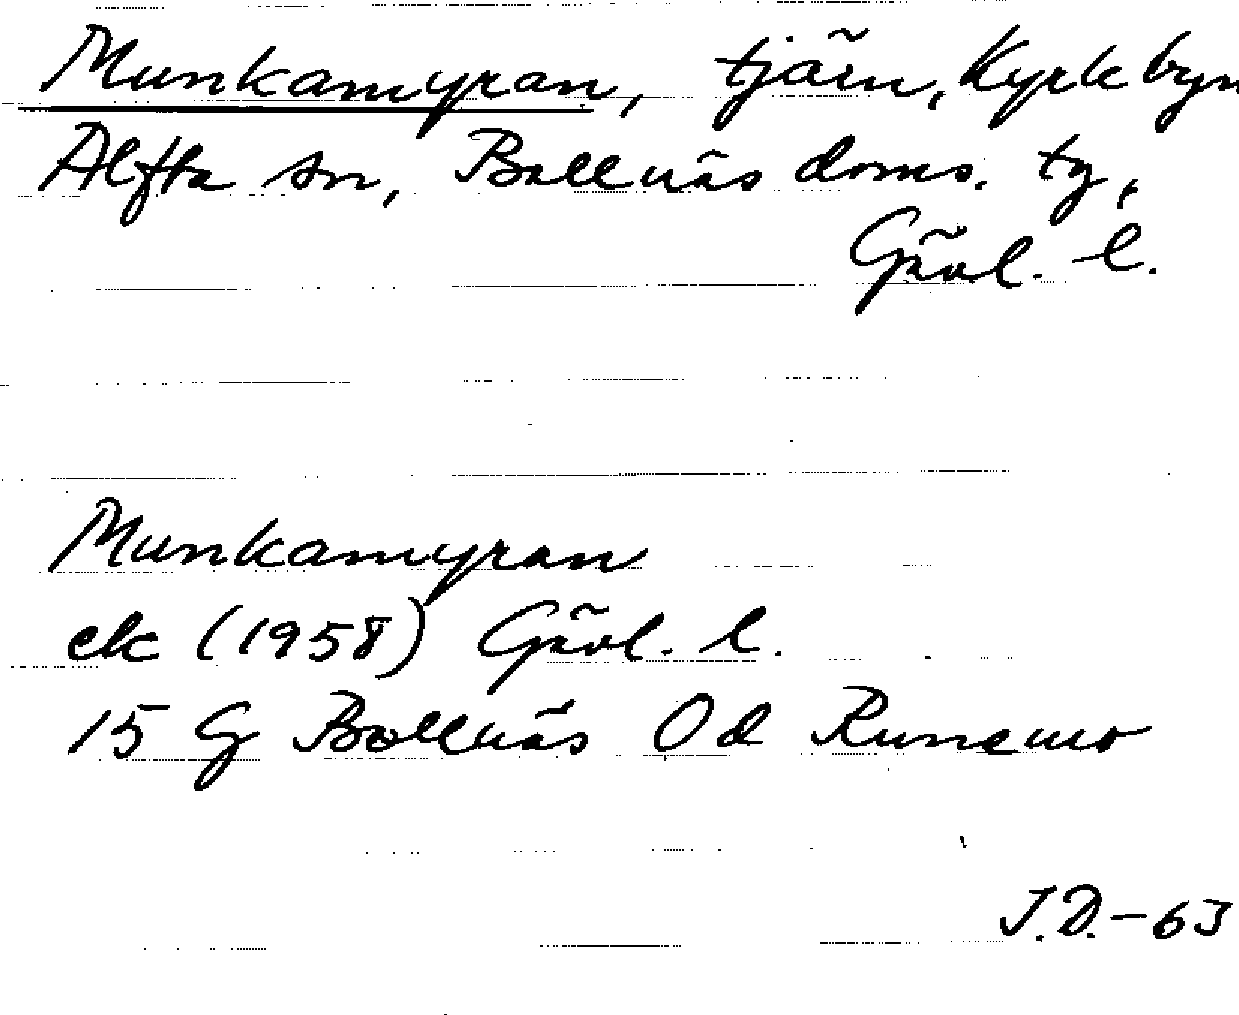 Munkamyran, tjärn, Kyrkbyn
Alfta sn, Bollnäs doms. tg,
Gävl. l.
Munkamyran
ek (1958) Gävl. l.
15 G Bollnäs 0 d Runemo
J.D.-63